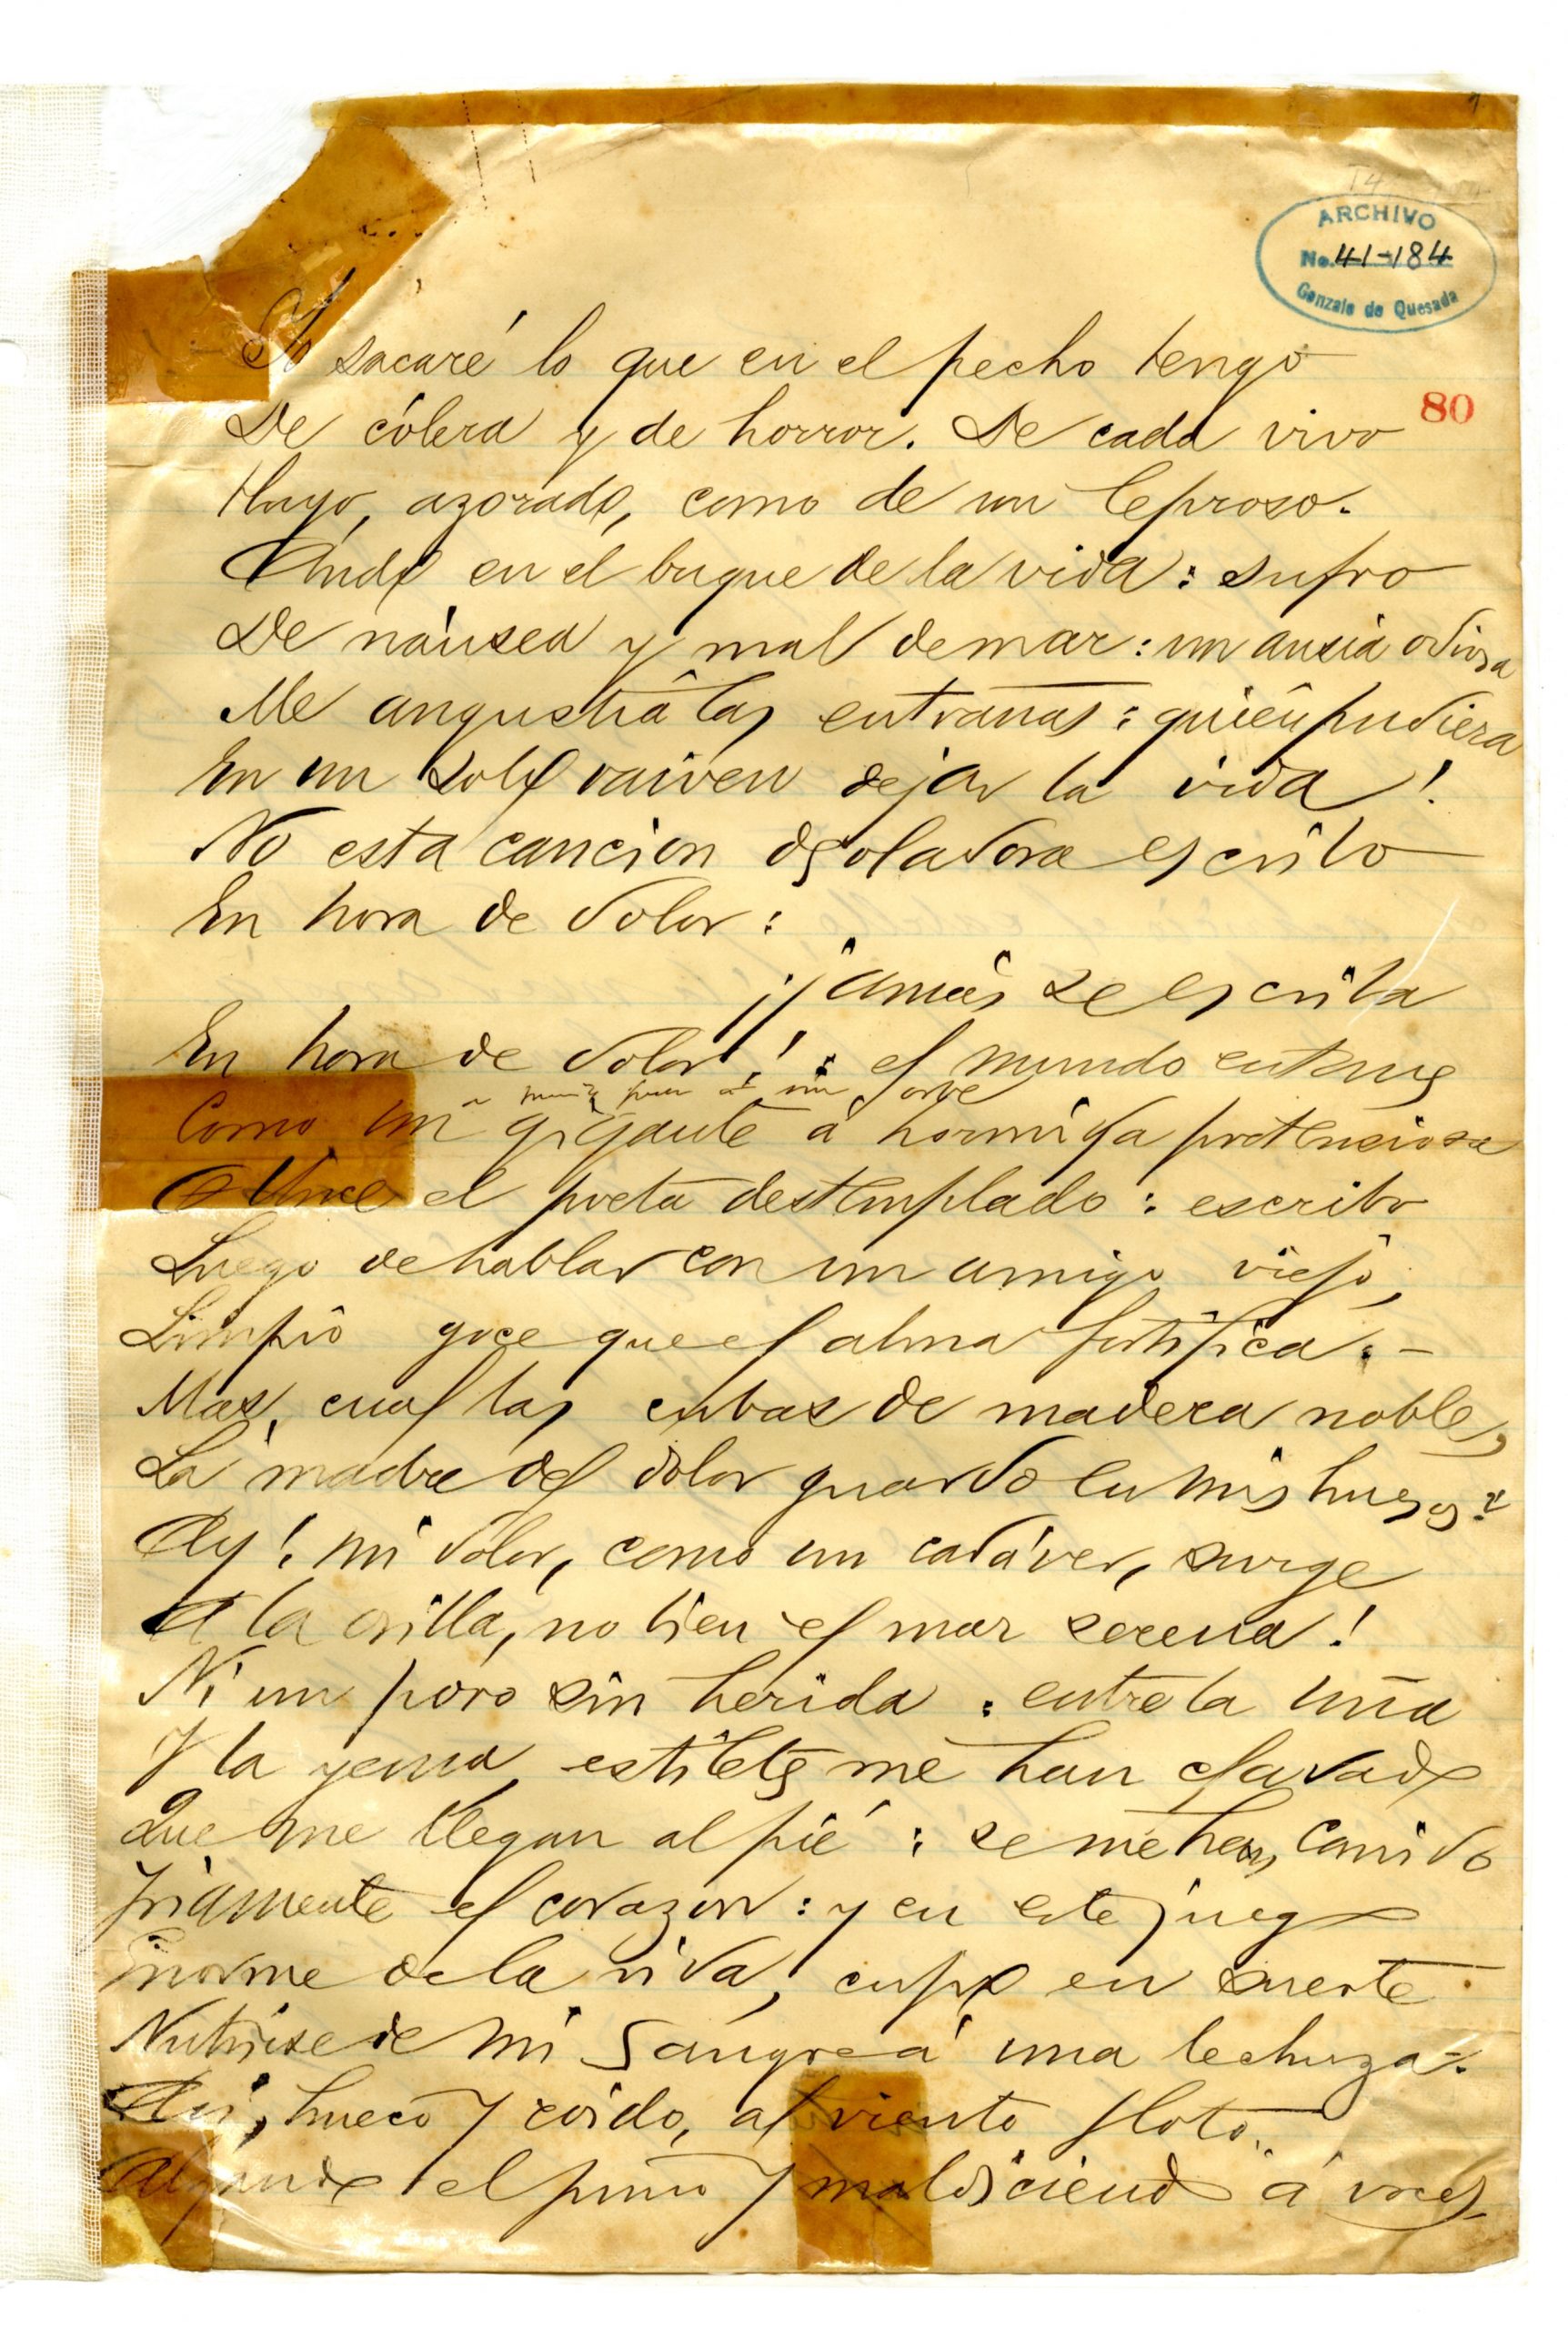 ARCHIVO
No. 41-184
Gonzalo de Quesada
80
Yo sacaré lo que en el pecho tengo
De cólera y de horror. De cada vivo
Huyo, azorado, como de un leproso.
Ando en el buque de la vida: sufro
De náusea y mal de mar: un ansia odiosa
Me angustia las entrañas: quién pudiera
En un solo vaiven dejar la vida!
No esta cancion desoladora escribo
En hora de dolor:
¡jamás se escriba
En hora de dolor!: el mundo entonces
Como un gigante á hormiga pretenciosa
el poeta destemplado: escribo
Luego de hablar con un amigo viejo,
Limpio goce que el alma fortifica.-
Mas, cual las cubas de madera noble,
La madre del dolor guardo en mis huesos!
Ay! mi dolor, como un cadáver, surge
A la orilla, no bien el mar serena!
Ni un poro sin herida: entre la uña
Y la yema, estiletes me han clavado
Que me llegan al pié: se me han comido
Friamente el corazon: y en este juego
Enorme de la vida, cupo en suerte
Nutrirse de mi sangre á una lechuza.-
Asi, hueco y roido, al viento floto
Alzando el puño y maldiciendo á voces